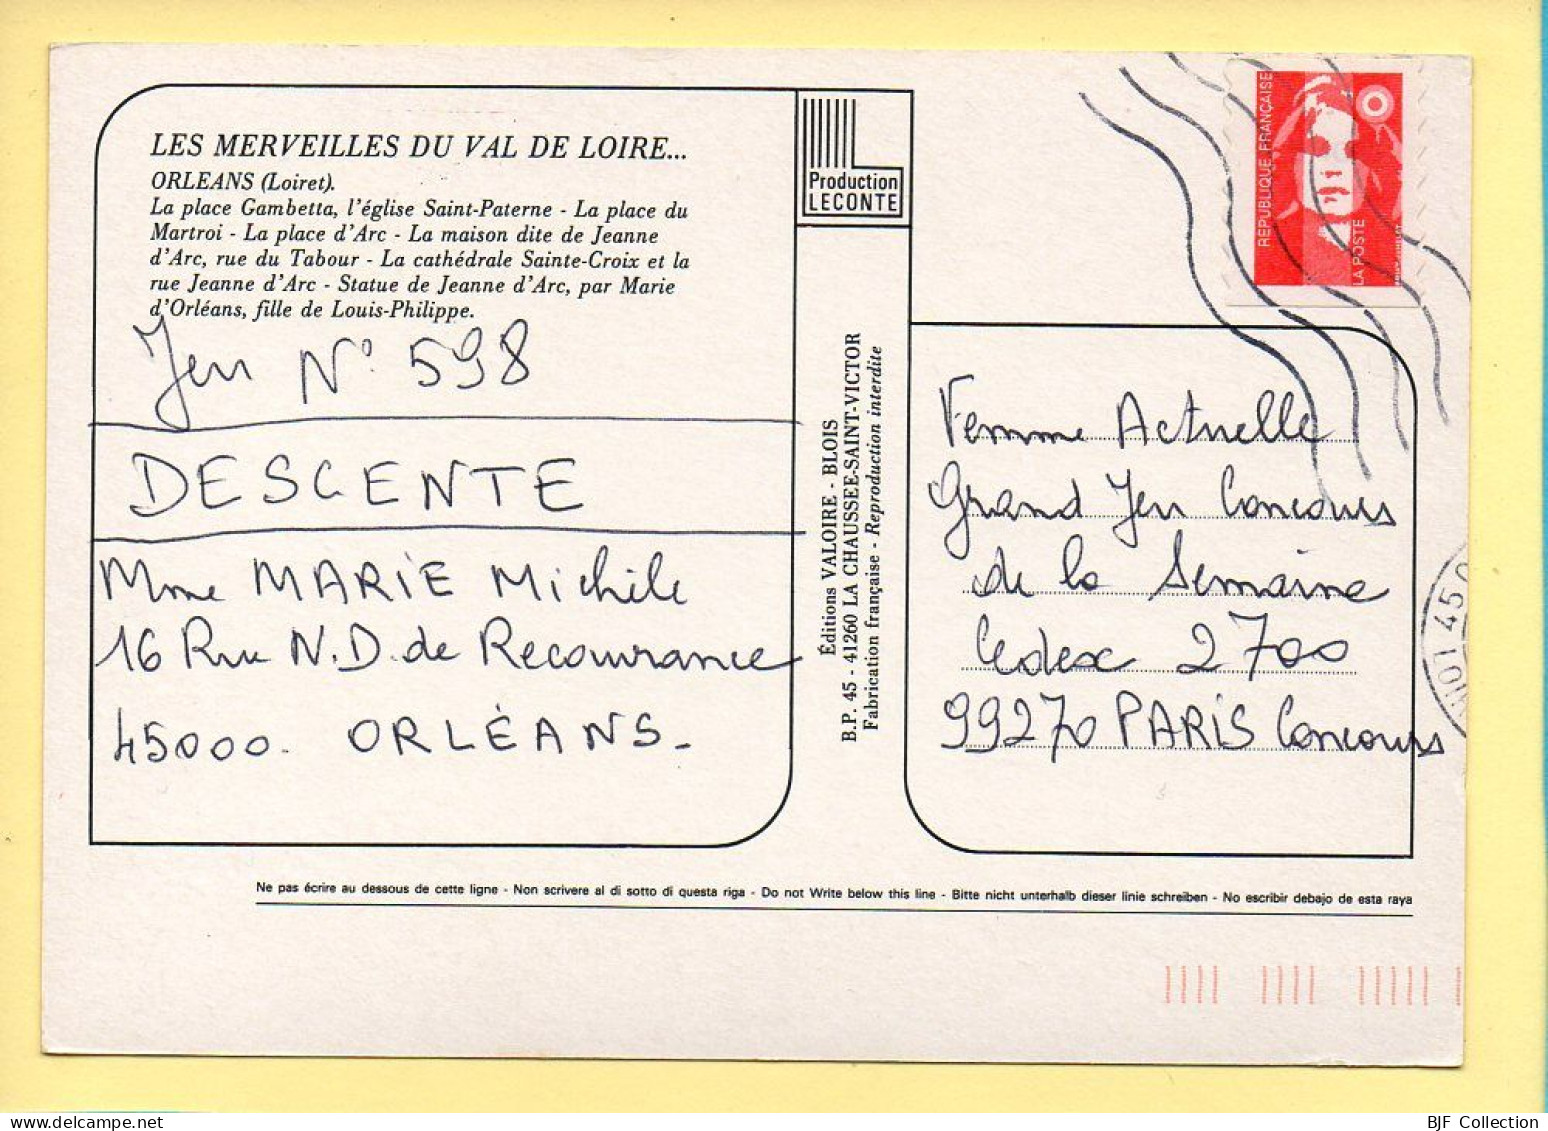 LES MERVEILLES DU VAL DE LOIRE...
ORLEANS (Loiret).
La place Gambetta, l'église Saint-Paterne - La place du
Martroi - La place d'Arc - La maison dite de Jeanne
d'Arc, rue du Tabour - La cathédrale Sainte-Croix et la
rue Jeanne d'Arc - Statue de Jeanne d'Arc, par Marie
d'Orléans, fille de Louis-Philippe.
Jeu N° 598
DESCENTE
Mme MARIE Michèle
16 Rue N.D. de Recouvrance
45000. ORLÉANS_
Production
LECONTE
Éditions VALOIRE - BLOIS
B.P. 45 - 41260 LA CHAUSSEE-SAINT-VICTOR
Fabrication française - Reproduction interdite
REPUBLIQUE FRANÇAISE
LA POSTE
Femme Actuelle
Grand Jeu Concours
de la Semaine
Cedex 2700
99270 PARIS Concours
Ne pas écrire au dessous de cette ligne - Non scrivere al di sotto di questa riga - Do not Write below this line - Bitte nicht unterhalb dieser linie schreiben - No escribir debajo de esta raya
BJF Collection